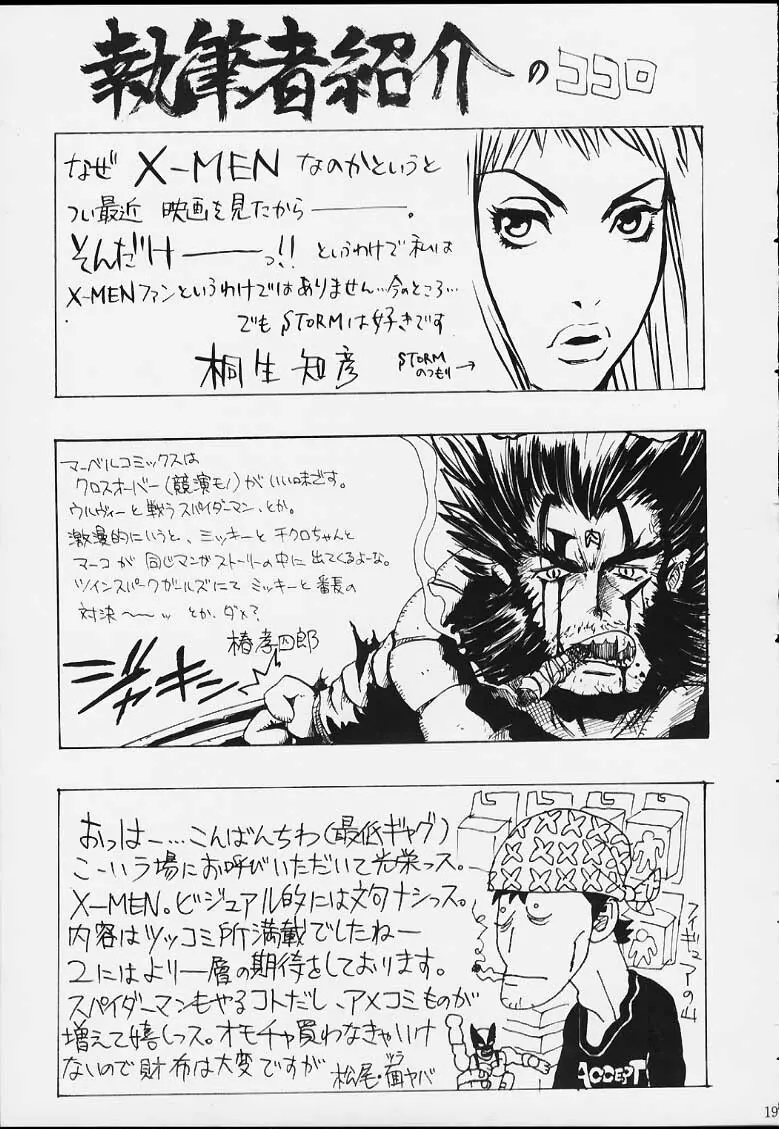 執筆者紹介のココロ
なぜ X-MEN なのかというと
つい最近 映画を見たから――――。
そんだけ―――っ!! というわけで私は
X-MENファンというわけではありません…今のところ…
でも STORMは好きです
桐生知彦
STORM
のつもり→
マーベルコミックスは
クロスオーバー(競演モノ)がいい味です。
ウルヴィーと戦うスパイダーマン、とか。
激漫的にいうと、ミッキーとチクロちゃんと
マーコが同じマンガストーリーの中に出てくるよーな。
ツインスパークガールズにてミッキーと番長の
対決〜〜ッ とか、ダメ?
椿孝四郎
ジャキン
肉
おっはー…こんばんちわ(最低ギャグ)
こーいう場にお呼びいただいて光栄っス。
X-MEN。ビジュアル的には文句ナシっス。
内容はツッコミ所満載でしたねー
2にはより一層の期待をしております。
スパイダーマンもやるコトだし、アメコミものが
増えて嬉しっス。オモチャ買わなきゃいけ
ないので財布は大変ですが
松尾・面ヤバ
ヅラ
フィギュアの山
ACCEPT
19